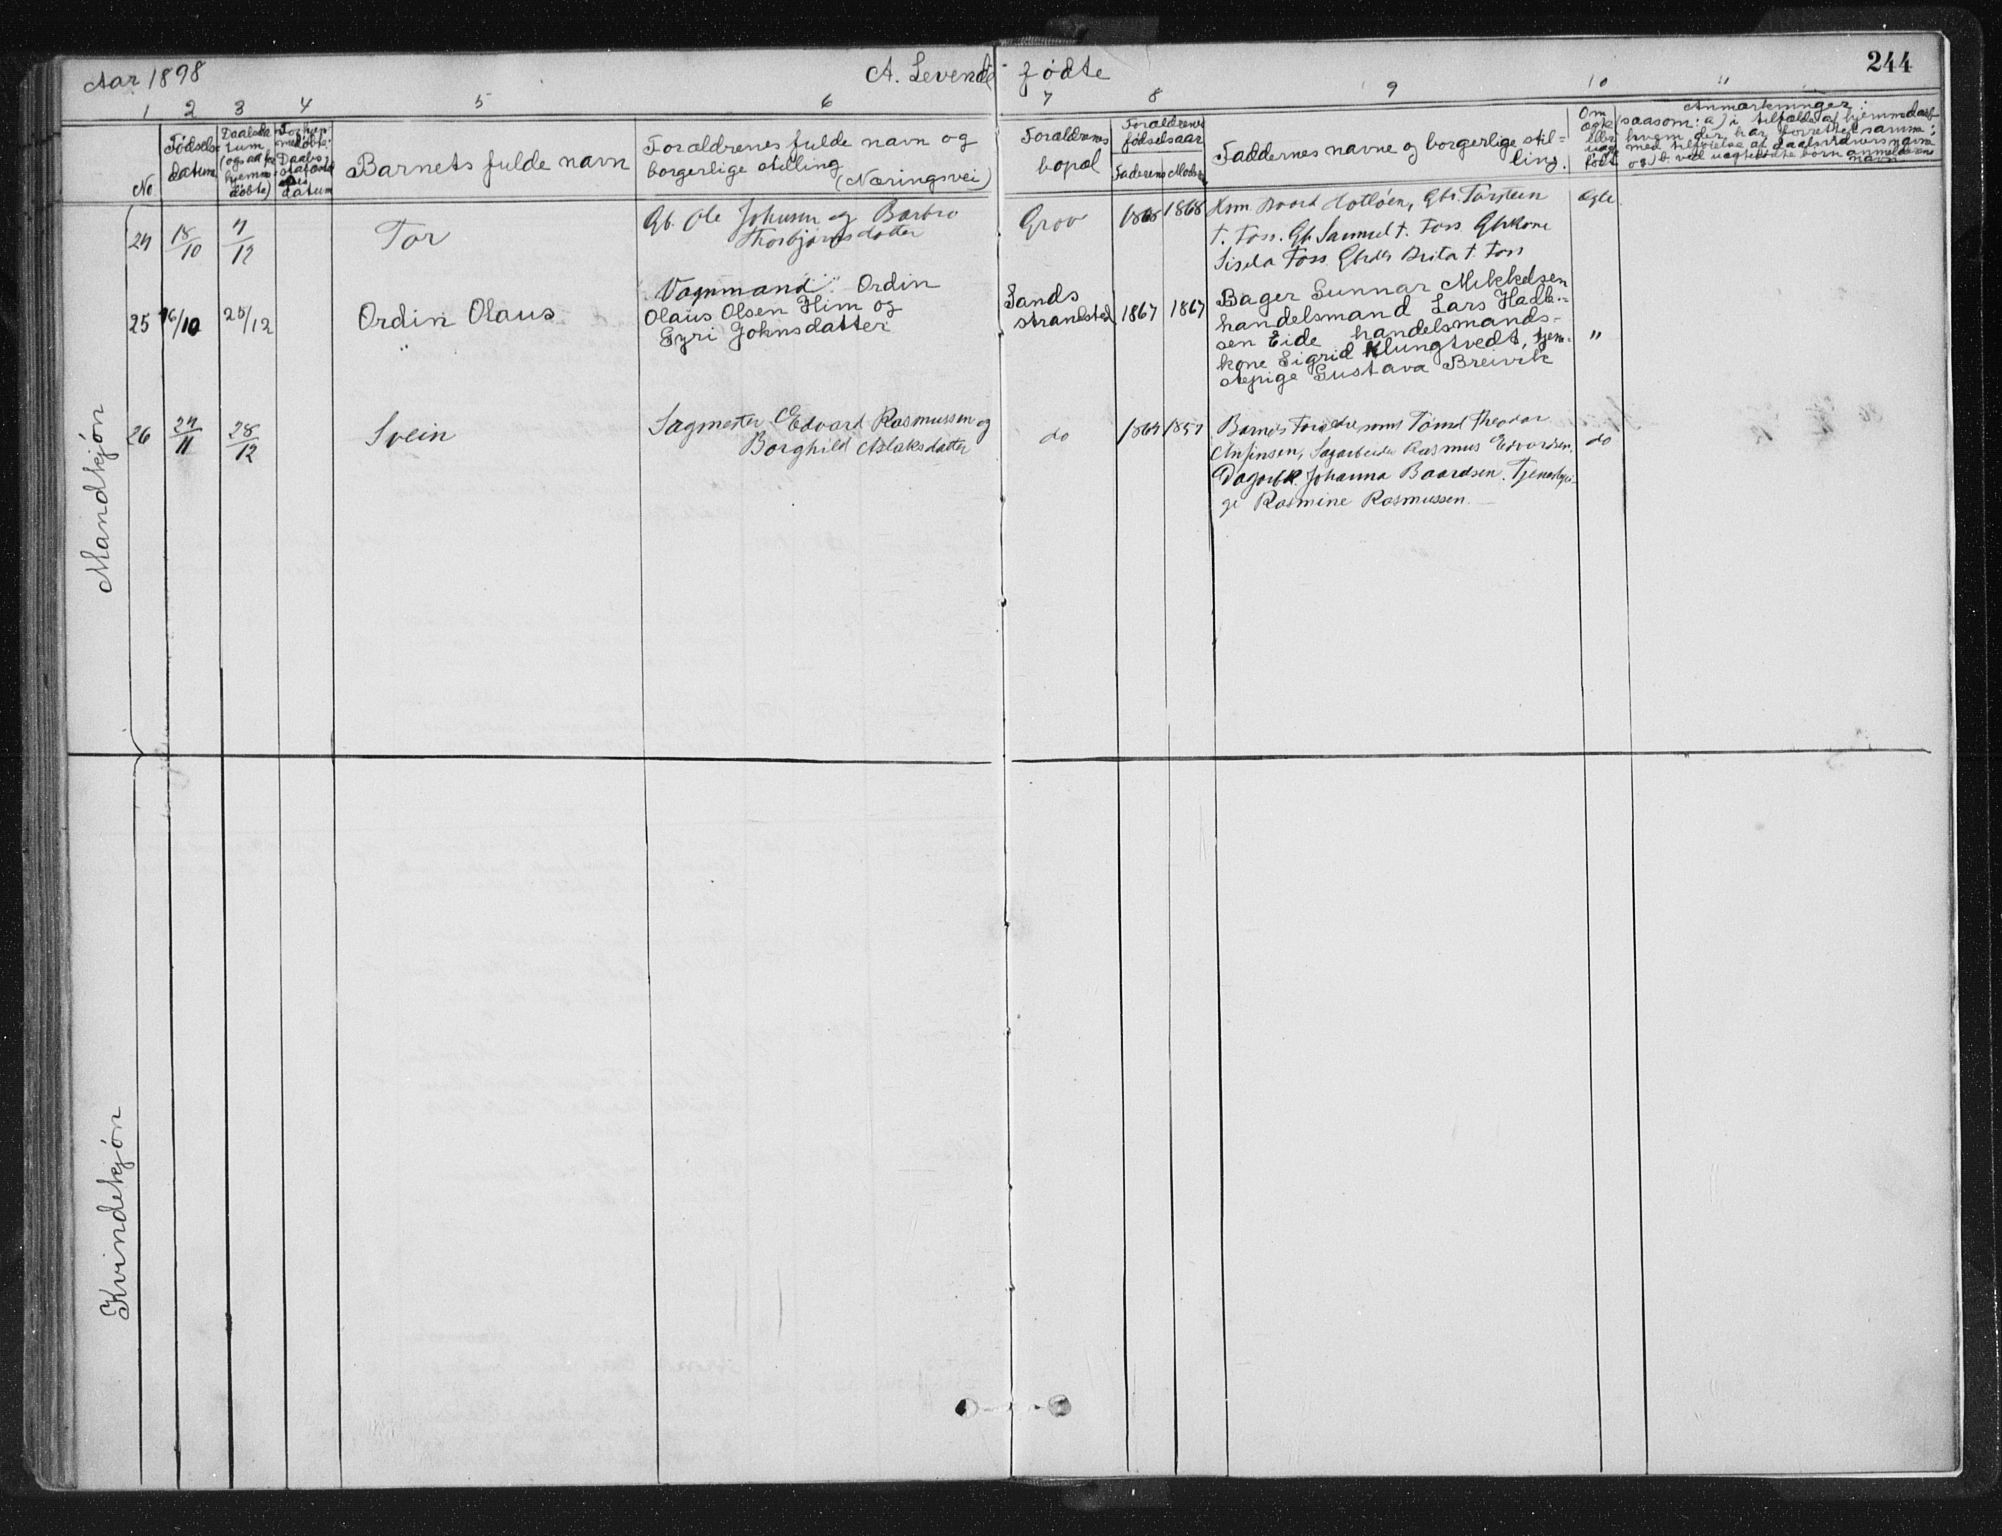 Aar 1898
A. Levende fødte
244
1 2 3 4 5 6 7 8 9 10 11
No
Fødselsdatum
Daabsdatum (ogsaa for hjemmedøbte)
Barnets fulde navn
Forældrenes fulde navn og
borgerlige stilling
(Næringsvei)
Forældrenes
bopæl
Forældrenes
fødselsaar
Faderens Moderens
Faddernes navne og borgerlige stil-
ling.
Om ægte eller uægte født
Anmærkninger:
saasom: a) i tilfælde af hjemmedaab
hvem der har forrettet samme;
med tilføielse af daabsvidners navne
og b ved uægtefødte børn anmelderens
navn
Mandkjøn
24 18/10 4/12 Tor
Gb. Ole Johnsen og Barbro
Thorbjørnsdatter
Grov 1868 1868
Baard Hotløen, Gbr. Torstein
T. Foss. Gb. Samuel T. Foss Gbrkone
Sisela Foss Brita T. Foss
Ægte
25 16/10 25/12 Ordin Olaus
Vognmand Ordin
Olaus Olsen Him og
Gyri Johnsdatter
Sands
strandsted 1867 1867
Bager Gunnar Mikkelsen
handelsmand Lars Hadle-
sen Eide handelsmands-
kone Sigrid Klungtvedt, tjen-
stepige Gustava Breivik
"
26 24/11 28/12 Svein
Sagmester Edvard Rasmussen og
Borghild Aslaksdatter
do 1864 1857
Barnets Forældre samt Theodor
Ansjinsen, Sagarbeider Rasmus Edvardsen,
Dagarb.k. Johanna Baardsen. Tjenestepi-
ge Rasmine Rasmussen.
do
Kvindekjøn